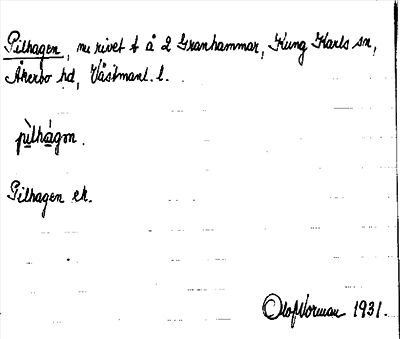 Pilhagen, nu rivet t å 2 Granhammar, Kung Karls sn,
Åkerbo hd, Västmanl. l.
pìlhágən.
Pilhagen ek.
Olof Norman 1931.